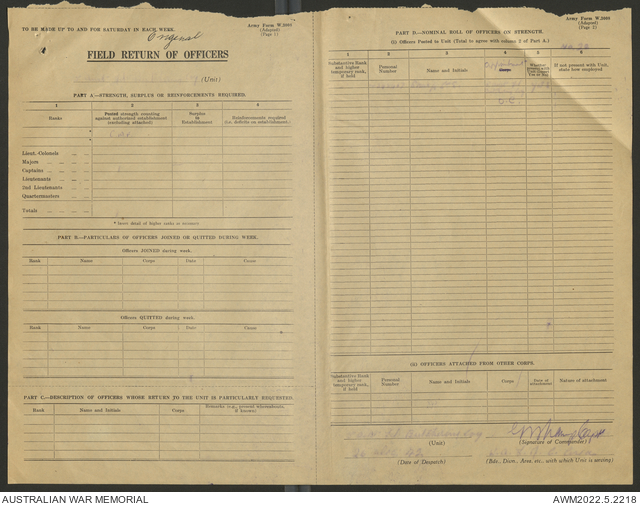 TO BE MADE UP TO AND FOR SATURDAY IN EACH WEEK.
Army Form W.3008
(Adapted)
(Page 1)
Original
FIELD RETURN OF OFFICERS
(Unit)
PART A—STRENGTH, SURPLUS OR REINFORCEMENTS REQUIRED.
1 2 3 4
Ranks
Posted strength counting against authorized establishment (excluding attached)
Surplus to Establishment
Reinforcements required (i.e. deficits on establishment)
Lieut.-Colonels
Majors
Captains
Lieutenants
2nd Lieutenants
Quartermasters
Totals
* Insert detail of higher ranks as necessary.
PART B.—PARTICULARS OF OFFICERS JOINED OR QUITTED DURING WEEK.
Officers JOINED during week.
Rank Name Corps Date Cause
Officers QUITTED during week.
Rank Name Corps Date Cause
PART C.—DESCRIPTION OF OFFICERS WHOSE RETURN TO THE UNIT IS PARTICULARLY REQUESTED.
Rank Name and Initials Corps Remarks (e.g., present whereabouts, if known)
Army Form W.3008
(Adapted)
(Page 2)
PART D.—NOMINAL ROLL OF OFFICERS ON STRENGTH.
(i) Officers Posted to Unit (Total to agree with column 2 of Part A.)
1 2 3 4 5 6
Substantive Rank and higher temporary rank, if held
Personal Number
Name and Initials
Corps
If not present with Unit state how employed
(ii) OFFICERS ATTACHED FROM OTHER CORPS.
Substantive Rank and higher temporary rank, if held
Personal Number
Name and Initials
Corps
Date of attachment
Nature of attachment
(Unit)
(Signature of Commander)
(Date of Despatch)
(Bde., Divn., Area, etc., with which Unit is serving)
AUSTRALIAN WAR MEMORIAL
AWM2022.5.2218